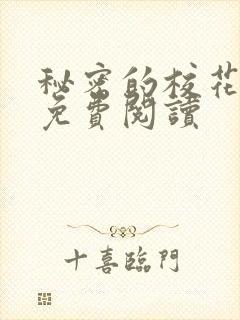 秘密的校花
免費閱讀
十喜臨門